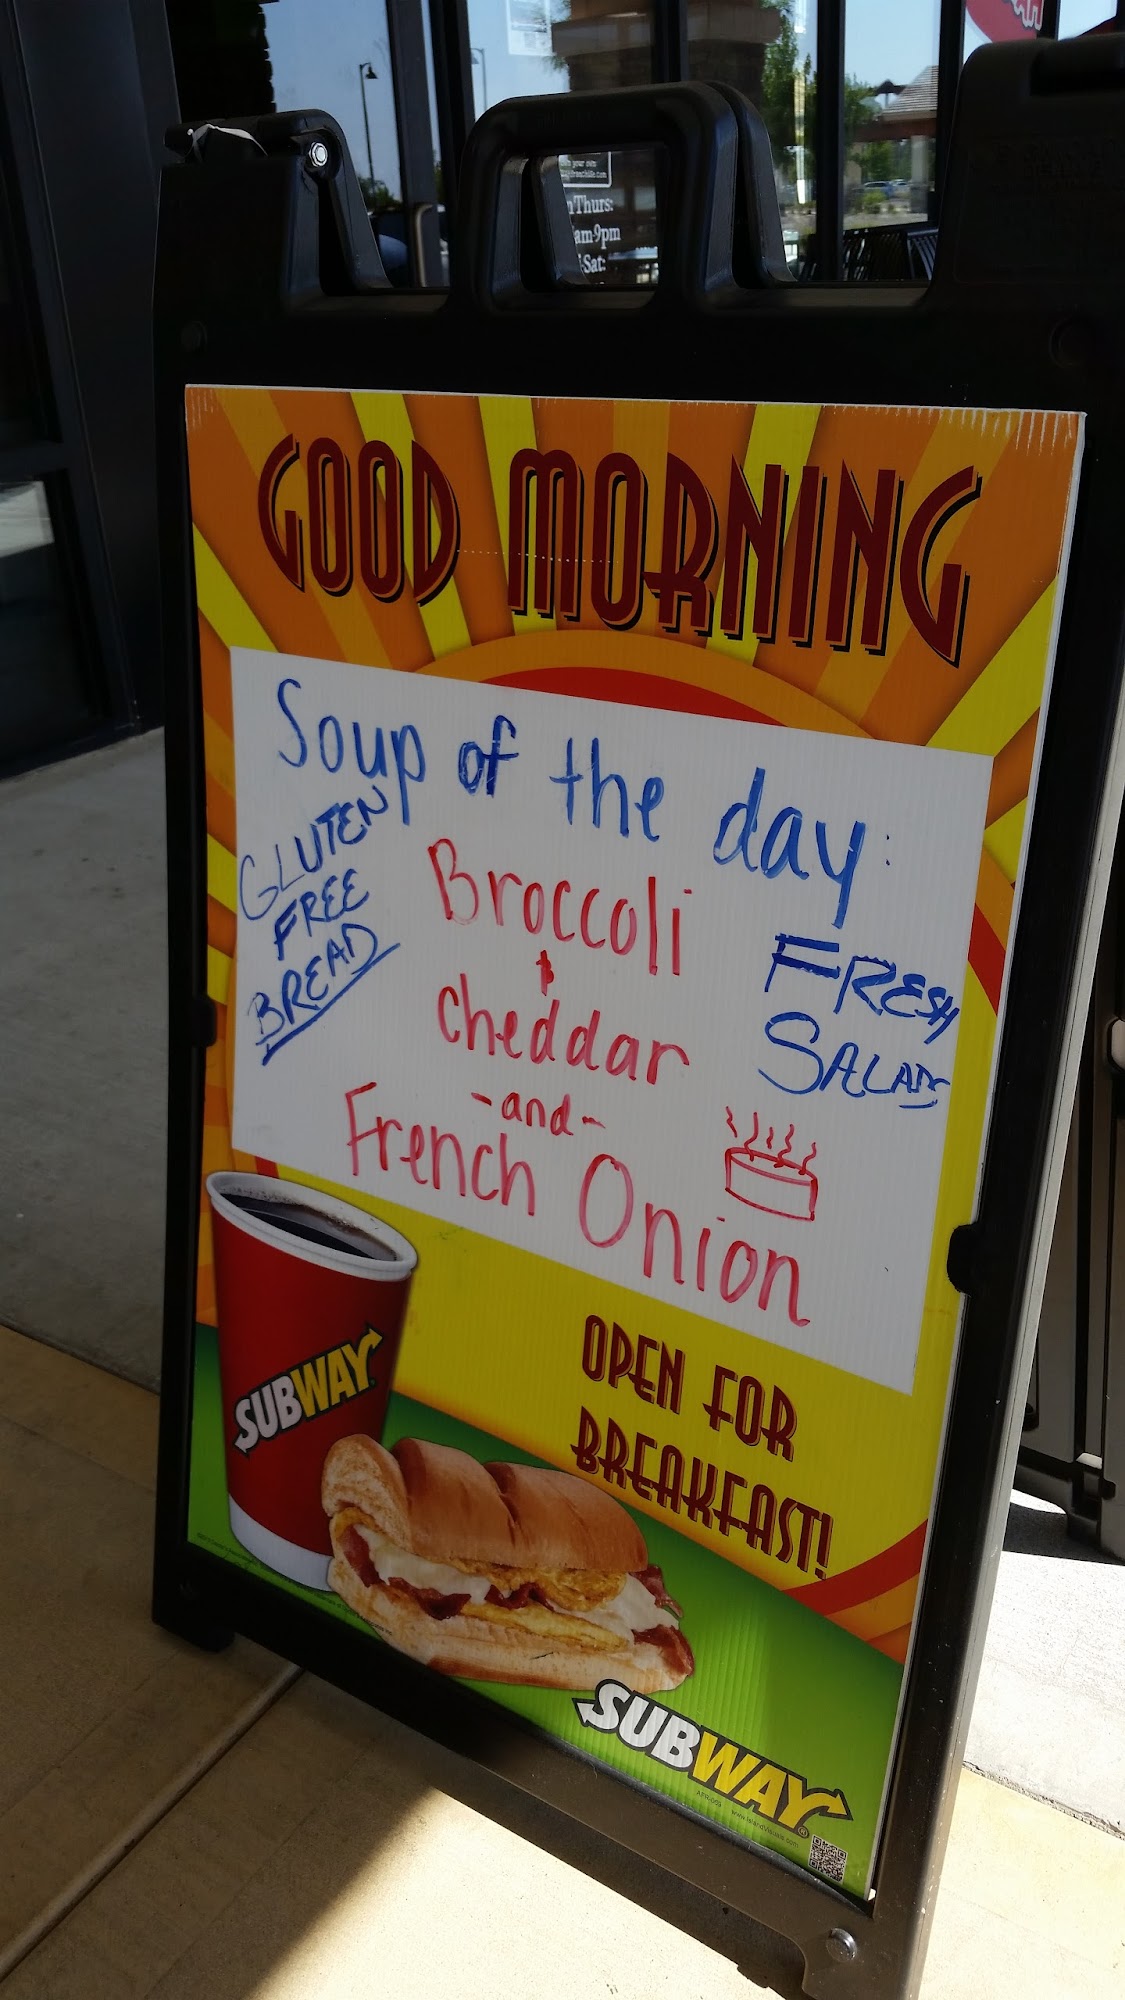 n Thurs:
am-9pm
Sat:
GOOD MORNING
Soup of the day:
GLUTEN
FREE
BREAD
Broccoli
&
Cheddar
-and-
French Onion
FRESH
SALADS
OPEN FOR
BREAKFAST!
SUBWAY
SUBWAY
www.IslandVisuals.com